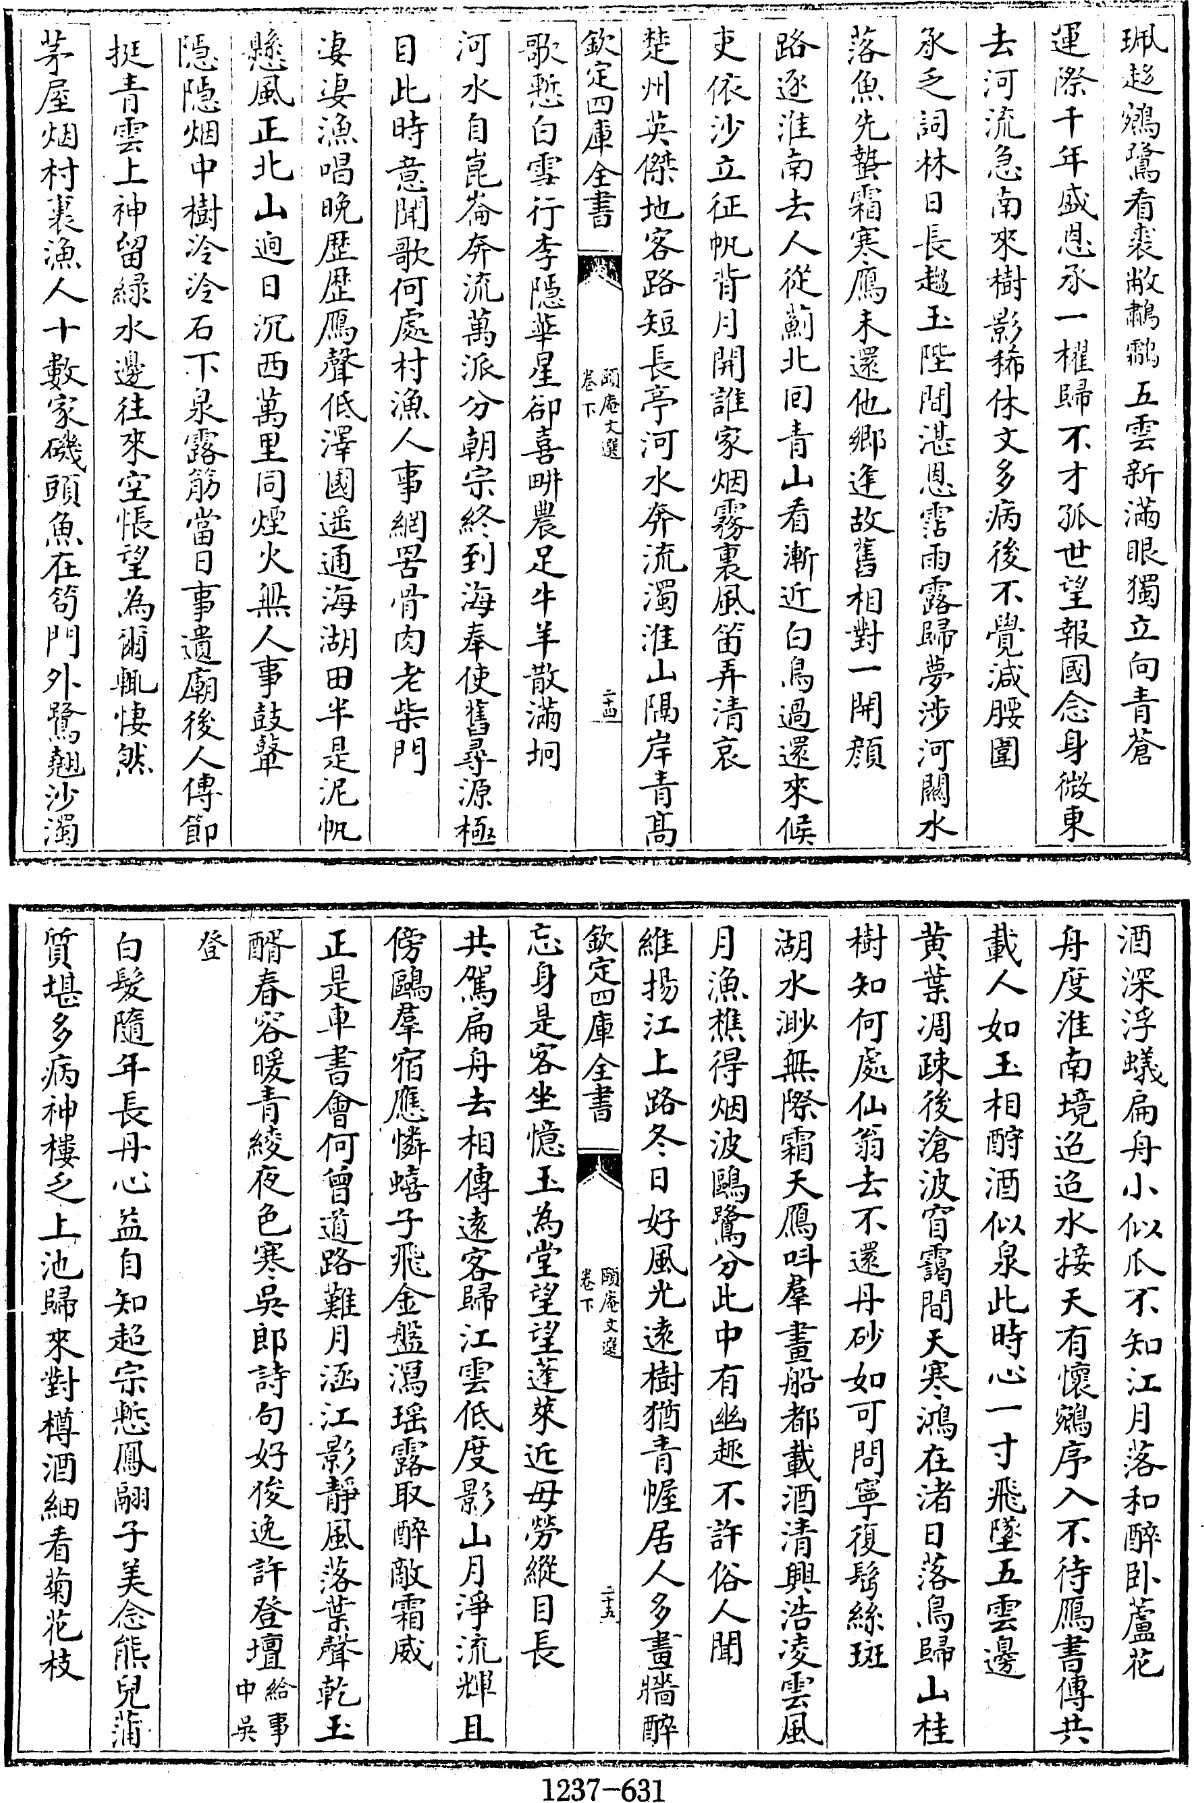 珮趁鵷鷺看裘敝鷫鸘五雲新滿眼獨立向青蒼
運際千年盛恩承一櫂歸不才孤世望報國念身微東
去河流急南來樹影稀休文多病後不覺減腰圍
承乏詞林日長趨玉陛間湛恩霑雨露歸夢涉河關水
落魚先蟄霜寒鴈未還他鄉逢故舊相對一開顔
路逐淮南去人從薊北回青山看漸近白鳥過還來候
吏依沙立征帆背月開誰家烟霧裏風笛弄清哀
楚州英傑地客路短長亭河水奔流濁淮山隔岸青高
欽定四庫全書
頤庵文選
卷下
二十四
歌慙白雪行李隱華星卻喜畊農足牛羊散滿坰
河水自崑崙奔流萬派分朝宗終到海奉使舊尋源極
目此時意聞歌何處村漁人事網罟骨肉老柴門
凄凄漁唱晚歴歴鴈聲低澤國遥通海湖田半是泥帆
懸風正北山逈日沉西萬里同煙火無人事鼓鼙
隱隱烟中樹泠泠石下泉露筋當日事遺廟後人傳節
挺青雲上神留緑水邊往來空悵望為爾輒悽然
茅屋烟村裏漁人十數家磯頭魚在笱門外鷺翹沙濁
酒深浮蟻扁舟小似瓜不知江月落和醉卧蘆花
舟度淮南境迢迢水接天有懷鵷序入不待鴈書傳共
載人如玉相酧酒似泉此時心一寸飛墜五雲邊
黄葉凋疎後滄波窅靄間天寒鴻在渚日落鳥歸山桂
樹知何處仙翁去不還丹砂如可問寧復髩絲斑
湖水渺無際霜天鴈呌羣畫船都載酒清興浩凌雲風
月漁樵得烟波鷗鷺分此中有幽趣不許俗人聞
維揚江上路冬日好風光遠樹猶青幄居人多畫牆醉
欽定四庫全書
頤庵文選
卷下
二十五
忘身是客坐憶玉為堂望望蓬萊近毋勞縱目長
共駕扁舟去相傳遠客歸江雲低度影山月淨流輝且
傍鷗羣宿應憐蟢子飛金盤瀉瑶露取醉敵霜威
正是車書會何曾道路難月涵江影靜風落葉聲乾玉
醑春容暖青綾夜色寒吳郎詩句好俊逸許登壇給事
中吳
登
白髮隨年長丹心益自知超宗慙鳳翮子美念熊兒蒲
質堪多病神樓乏上池歸來對樽酒細看菊花枝
1237-631